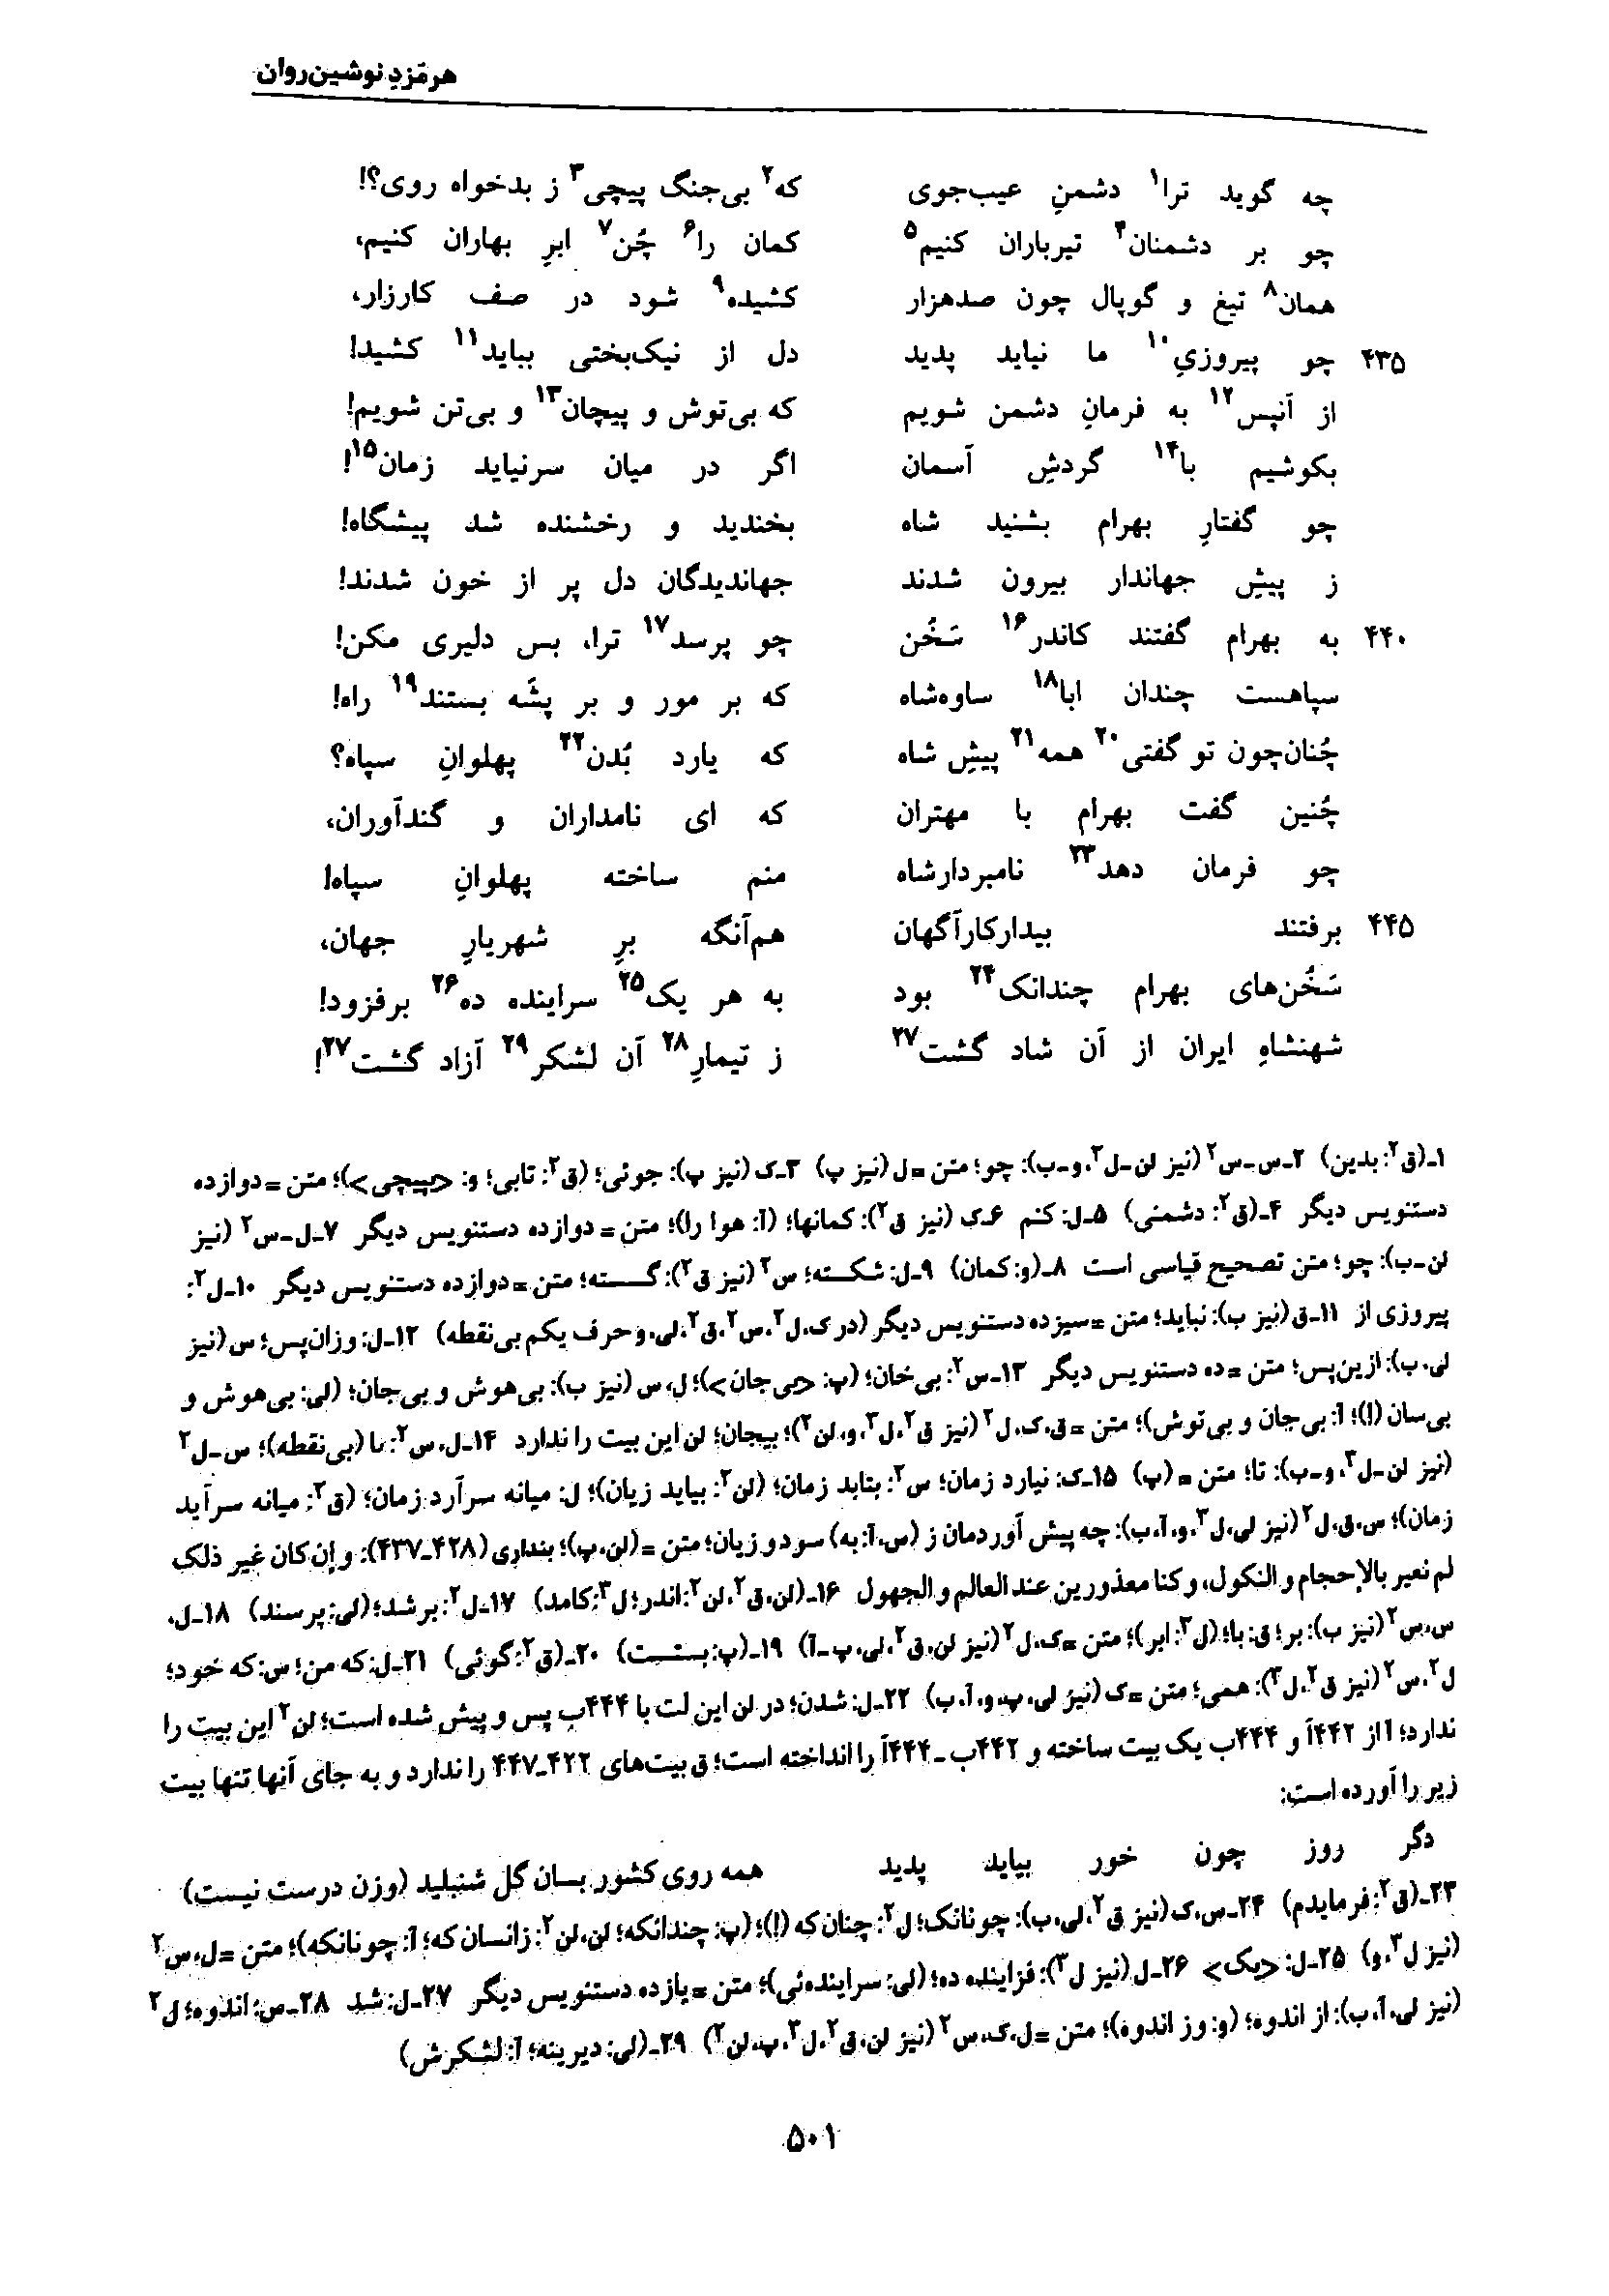 هرمَزدِ نوشین‌روان
چه گوید ترا۱ دشمنِ عیب‌جوی که۲ بی‌جنگ پیچی۳ ز بدخواه روی؟!
چو بر دشمنان۴ تیرباران کنیم۵ کمان را۶ چُن۷ ابرِ بهاران کنیم،
همان۸ تیغ و گوپال چون صدهزار کشیده۹ شود در صف کارزار،
۴۳۵ چو پیروزیِ۱۰ ما نیاید پدید دل از نیک‌بختی بباید۱۱ کشید!
از آنپس۱۲ به فرمانِ دشمن شویم که بی‌توش و پیچان۱۳ و بی‌تن شویم!
بکوشیم با۱۴ گردشِ آسمان اگر در میان سرنیاید زمان۱۵!
چو گفتارِ بهرام بشنید شاه بخندید و رخشنده شد پیشگاه!
ز پیشِ جهاندار بیرون شدند جهاندیدگان دل پر از خون شدند!
۴۴۰ به بهرام گفتند کاندر۱۶ سَخُن چو پرسد۱۷ ترا، بس دلیری مکن!
سپاهست چندان ابا۱۸ ساوه‌شاه که بر مور و بر پشّه بستند۱۹ راه!
چُنان‌چون تو گفتی۲۰ همه۲۱ پیشِ شاه که یارد بُدن۲۲ پهلوانِ سپاه؟
چُنین گفت بهرام با مهتران که ای نامداران و گندآوران،
چو فرمان دهد۲۳ نامبردارشاه منم ساخته پهلوانِ سپاه!
۴۴۵ برفتند بیدارکارآگهان هم‌آنگه برِ شهریارِ جهان،
سَخُن‌های بهرام چندانک۲۴ بود به هر یک۲۵ سراینده ده۲۶ برفزود!
شهنشاهِ ایران از آن شاد گشت۲۷ ز تیمارِ۲۸ آن لشکر۲۹ آزاد گشت۲۷!
۱ـ(ق۲: بدین) ۲ـ‌س-س۲ (نیز لن-ل۲، و-ب): چو؛ متن =ل (نیز پ) ۳ـ‌ک (نیز پ): جوئی؛ (ق۲: تابی؛ و: <پیچی>)؛ متن =دوازده
دستنویس دیگر ۴ـ(ق۲: دشمنی) ۵ـ‌ل: کنم ۶ـ‌ک (نیز ق۲): کمانها؛ (آ: هوا را)؛ متن = دوازده دستنویس دیگر ۷ـ‌ل-س۲ (نیز
لن-ب): چو؛ متن تصحیح قیاسی است ۸ـ(و: کمان) ۹ـ‌ل: شکسته؛ س۲ (نیز ق۲): گسسته؛ متن =دوازده دستنویس دیگر ۱۰ـ‌ل۲:
پیروزی از ۱۱ـ‌ق (نیز ب): نباید؛ متن =سیزده دستنویس دیگر (در ک، ل۲، س۲، ق۲، لی، و حرف یکم بی‌نقطه) ۱۲ـ‌ل: وزان‌پس؛ س (نیز
لی، ب): ازین‌پس؛ متن =ده دستنویس دیگر ۱۳ـ‌س۲: بی‌خان؛ (پ: <بی‌جان>)؛ ل، س (نیز ب): بی‌هوش و بی‌جان؛ (لی: بی‌هوش و
بی‌سان (!)؛ آ: بی‌جان و بی‌توش)؛ متن =ق، ک، ل۲ (نیز ق۲، ل۳، و، لن۲)؛ بیجان؛ لن این بیت را ندارد ۱۴ـ‌ل، س۲: ٮا (بی‌نقطه)؛ س-ل۲
(نیز لن-ل۳، و-ب): تا؛ متن =(پ) ۱۵ـ‌ک: نیارد زمان؛ س۲: بتابد زمان؛ (لن۲: بیاید زیان)؛ ل: میانه سرآرد زمان؛ (ق۲: میانه سرآید
زمان)؛ س، ق، ل۲ (نیز لی، ل۳، و، آ، ب): چه پیش آوردمان ز (س، آ: به) سود و زیان؛ متن =(لن، پ)؛ بنداری (۴۲۸-۴۳۷): و إن کان غیر ذلک
لم نعیر بالإحجام و النکول، و کنا معذورین عند العالم و الجهول ۱۶ـ(لن، ق۲، لن۲: اندر؛ ل۳: کامد) ۱۷ـ‌ل۲: بر شد؛ (لی: پرسند) ۱۸ـ‌ل،
س، س۲ (نیز ب): بر؛ ق: با؛ (ل۳: ابر)؛ متن =ک، ل۲ (نیز لن، ق۲، لی، پ-آ) ۱۹ـ(پ: بستست) ۲۰ـ(ق۲: گوئی) ۲۱ـ‌ل: که من؛ س: که خود؛
ل۲، س۲ (نیز ق۲، ل۳): همی؛ متن =ک (نیز لی، پ، و، آ، ب) ۲۲ـ‌ل: شدن؛ در لن این لت با ۴۴۴ب پس و پیش شده است؛ لن۲ این بیت را
ندارد؛ آ از ۴۴۲آ و ۴۴۴ب یک بیت ساخته و ۴۴۲ب-۴۴۴آ را انداخته است؛ ق بیت‌های ۴۲۲-۴۴۷ را ندارد و به جای آنها تنها بیت
زیر را آورده است:
دگر روز چون خور بیاید پدید همه روی کشور بسان گل شنبلید (وزن درست نیست)
۲۳ـ(ق۲: فرمایدم) ۲۴ـ‌س، ک (نیز ق۲، لی، ب): چونانک؛ ل۲: چنان که (!)؛ (پ: چندانکه؛ لن، لن۲: زانسان که؛ آ: چونانکه)؛ متن =ل، س۲
(نیز ل۳، و) ۲۵ـ‌ل: <یک> ۲۶ـ‌ل (نیز ل۳): فزاینده ده؛ (لی: سراینده‌ئی)؛ متن =یازده دستنویس دیگر ۲۷ـ‌ل: شد ۲۸ـ‌س: اندوه؛ ل۲
(نیز لی، آ، ب): از اندوه؛ (و: وز اندوه)؛ متن =ل، ک، س۲ (نیز لن، ق۲، ل۳، پ، لن۲) ۲۹ـ(لی: دیرینه؛ آ: لشکرش)
۵۰۱